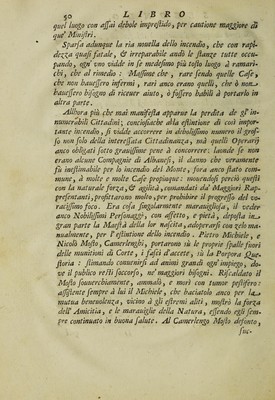 50 LIBRO
quel luogo con assai debole imprestido, per cautione maggiore di
que' Ministri.
Sparsa adunque la ria novella dello incendio, che con rapi-
dezza quasi fatale, & irreparabile andò le stanze tutte occu-
pando, ogn' vno viddesi in se medesimo più tosto luogo à ramari-
chi, che al rimedio: Massime che, rare sendo quelle Case,
che non hauessero infermi, rari anco erano quelli, che ò non
hauessero bisogno di riceuer aiuto, ò fussero habili à portarlo in
altra parte.
Allhora più che mai manifesta apparue la perdita de gl' in-
numerabili Cittadini; conciosiache alla estintione di così impor-
tante incendio, si vidde accorrere in debolissimo numero il gros-
so non solo della interessata Cittadinanza, mà quelli Operarij
anco obligati sotto grauissime pene à concorrere: laonde se non
erano alcune Compagnie di Albanesi, il danno che veramente
fù inestimabile per lo incendio del Monte, fora anco stato com-
mune, à molte e molte Case propinque: mouendosi perciò questi
con la naturale forza, & agilità, comandati da' Maggiori Rap-
presentanti, profittarono molto, per prohibire il progresso del vo-
racissimo foco. Era cosa singularmente marauigliosa, il veder
anco Nobilissimi Personaggi, con affetto, e pietà, deposta in
gran parte la Maestà della lor nascita, adoprarsi con zelo ma-
nualmente, per l'estintione dello incendio. Pietro Michiele, e
Nicolò Mosto, Camerlenghi, portarono sù le proprie spalle fuori
delle munitioni di Corte, i fasci d'accete, sù la Porpora Que-
storia: stimando conuenirsi ad animi grandi ogn' impiego, do-
ve il publico resti soccorso, ne' maggiori bisogni. Riscaldato il
Mosto souuerchiamente, ammalò, e morì con tumor pestifero:
assistente sempre à lui il Michiele, che baciatolo anco per la
mutua beneuolenza, vicino à gli estremi aliti, mostrò la forza
dell' Amicitia, e le marauiglie della Natura, essendo egli sem-
pre continuato in buona salute. Al Camerlengo Mosto defonto,
suc-